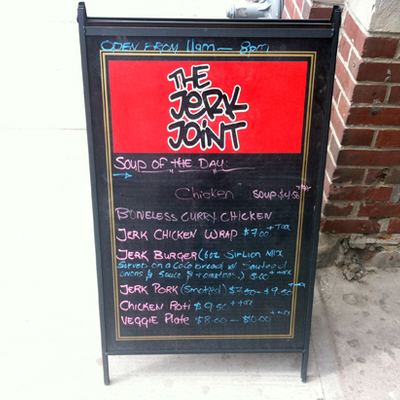 OPEN FROM 11am — 8pm
THE
JERK
JOINT
SOUP OF THE DAY:
Chicken SOUP $4.50
BONELESS CURRY CHICKEN
JERK CHICKEN WRAP $7.00 + TAX
JERK BURGER (6oz SIRLION MIX
SERVED ON a COCO bread w/ Sauteed
onions & sauce & tomatoes) + tax
JERK PORK (Smoked)
CHICKEN ROTI $9.50 + tax
VEGGIE PLATE $8.00 — $10.00 + tax